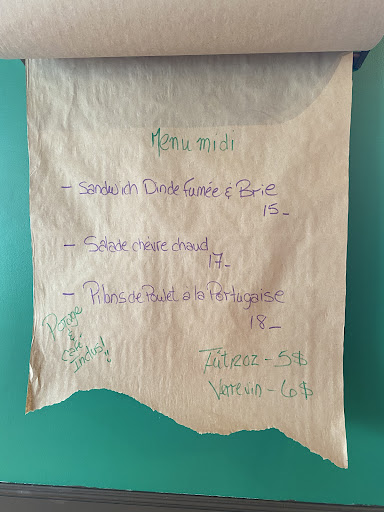 Menu midi
- Sandwich Dinde fumée & Brie
15-
- Salade chèvre chaud
17-
- Pilons de Poulet à la Portugaise
18-
Potage
&
Café
Inclus!!
- 5$
Verre vin - 6$